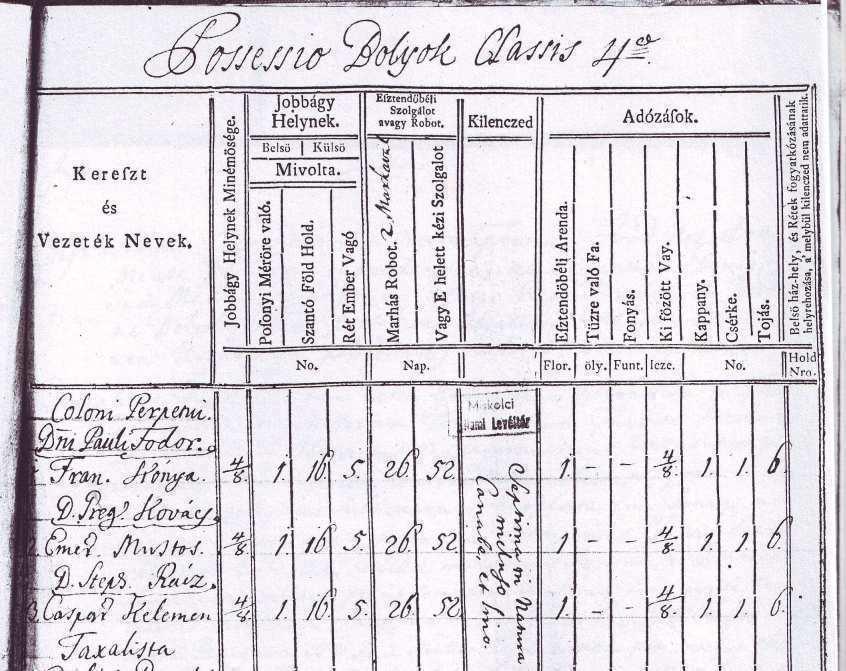 Possessio Dolyok Classis 4
Kereszt
és
Vezeték Nevek.
Jobbágy Helynek Minémösége.
Jobbágy
Helynek.
Belsö Külsö
Mivolta.
Posonyi Méröre való.
Szantó Föld Hold.
Rét Ember Vagó
Esztendöbéli
Szolgálot
avagy Robot.
Marhás Robot. 2
Vagy E helett kézi Szolgalot
Kilenczed
Adózások.
Esztendöbéli Arenda.
Tüzre való Fa.
Fonyás.
Ki fözött Vay.
Kappany.
Csérke.
Tojás.
Belsö ház-hely, és Rétek fogyatkozásának
helyrehozása, a' melybül kilenczed nem adattatik.
No. Nap. Flor. öly. Funt. Icze. No. Hold
Nro.
Coloni
Dni Pauli Fodor.
Miskolci
Levéltár
Fran. Kónya. 4/8 1. 16 5. 26 52. 1. – – 4/8. 1. 1. 6.
D. Greg. Kovács.
2. Emer. Mustos. 4/8 1. 16 5. 26. 52. 1. – – 4/8. 1. 1. 6.
D. Steph. Rácz.
3. Caspar Kelemen 4/8 1. 16 5. 26 52 1. – – 4/8. 1. 1. 6.
in Natura
et Lino.
Taxalista